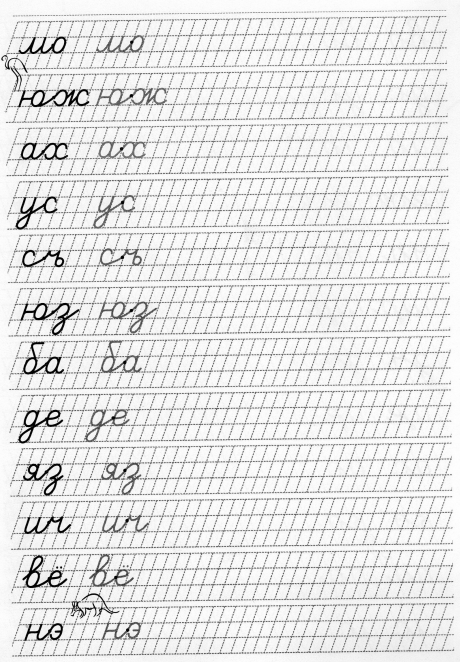 мо мо
юж юж
ах ах
ус ус
съ съ
юз юз
ба ба
де де
яз яз
ич ич
вё вё
нэ нэ